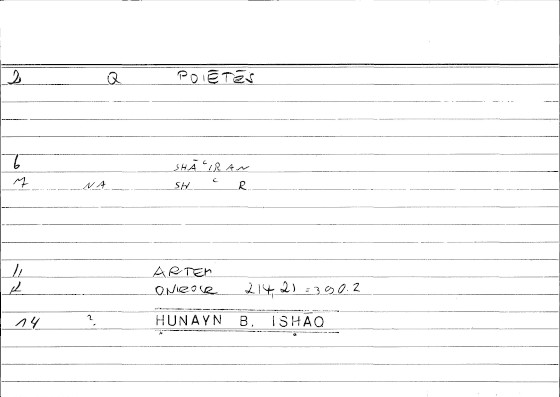 2 Q POIĒTĒS
6 SHĀʿIRAN
7 NA SH ʿ R
11 ARTEM
12 ONIROCR 214,21 = 390.2
14 ?. HUNAYN B. ISHĀQ